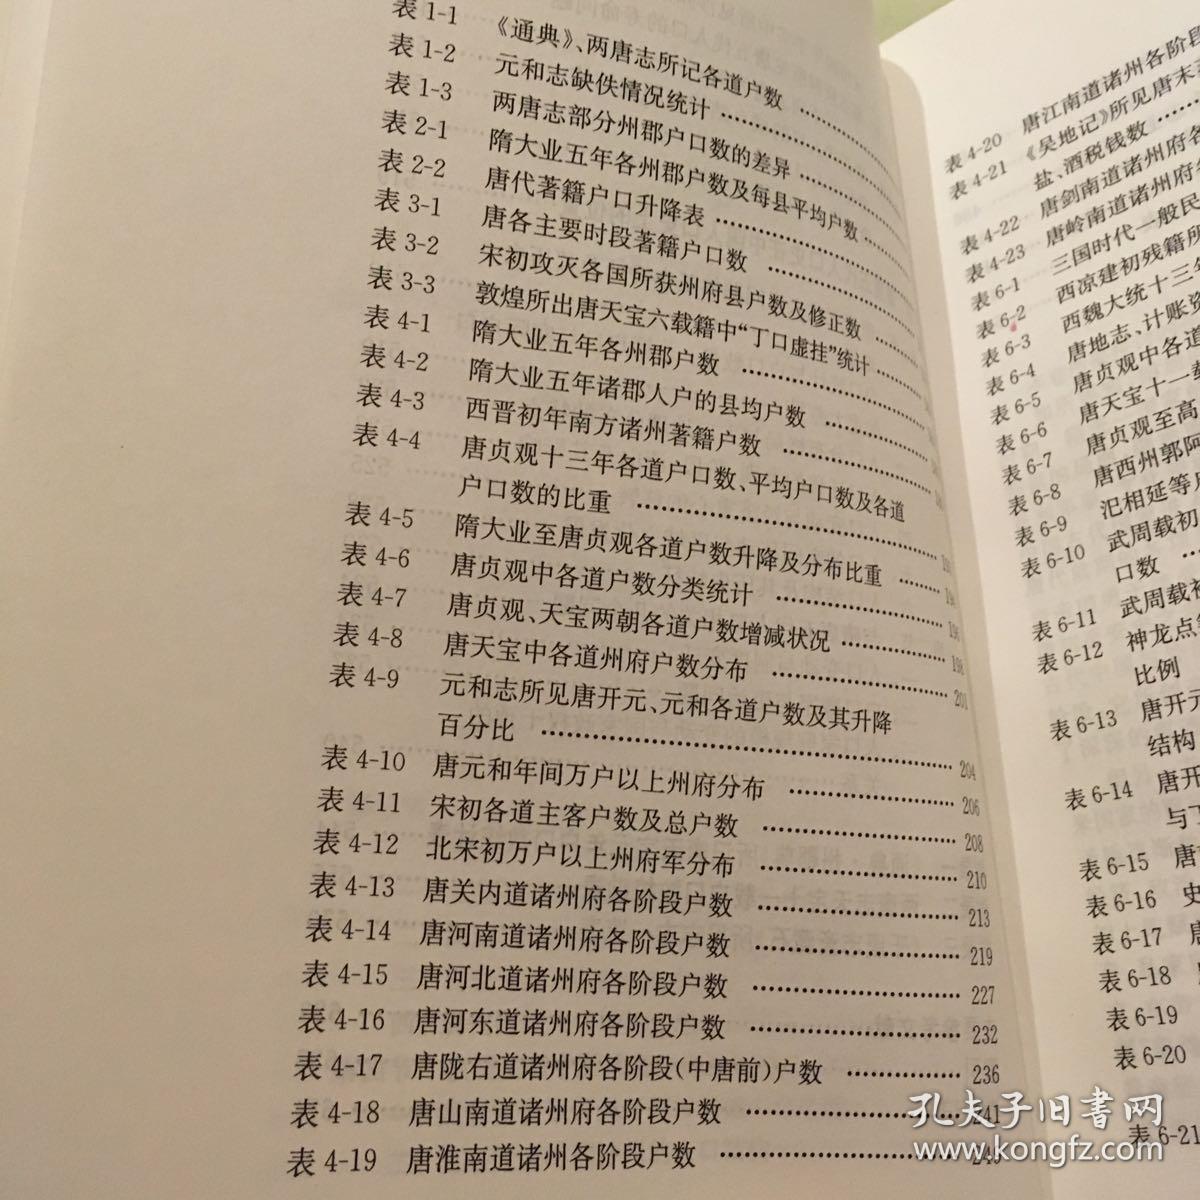 表 1-1 《通典》、两唐志所记各道户数
表 1-2 元和志缺佚情况统计
表 1-3 两唐志部分州郡户口数的差异
表 2-1 隋大业五年各州郡户数及每县平均户数
表 2-2 唐代著籍户口升降表
表 3-1 唐各主要时段著籍户口数
表 3-2 宋初攻灭各国所获州府县户数及修正数
表 3-3 敦煌所出唐天宝六载籍中“丁口虚挂”统计
表 4-1 隋大业五年各州郡户数
表 4-2 隋大业五年诸郡人户的县均户数
表 4-3 西晋初年南方诸州著籍户数
表 4-4 唐贞观十三年各道户口数、平均户口数及各道
户口数的比重
表 4-5 隋大业至唐贞观各道户数升降及分布比重
表 4-6 唐贞观中各道户数分类统计 196
表 4-7 唐贞观、天宝两朝各道户数增减状况 198
表 4-8 唐天宝中各道州府户数分布 201
表 4-9 元和志所见唐开元、元和各道户数及其升降
百分比 204
表 4-10 唐元和年间万户以上州府分布 206
表 4-11 宋初各道主客户数及总户数 208
表 4-12 北宋初万户以上州府军分布 210
表 4-13 唐关内道诸州府各阶段户数 213
表 4-14 唐河南道诸州府各阶段户数 219
表 4-15 唐河北道诸州府各阶段户数 227
表 4-16 唐河东道诸州府各阶段户数 232
表 4-17 唐陇右道诸州府各阶段(中唐前)户数 236
表 4-18 唐山南道诸州府各阶段户数 241
表 4-19 唐淮南道诸州各阶段户数
表 4-20 唐江南道诸州各阶段
表 4-21 《吴地记》所见唐末
盐、酒税钱数
表 4-22 唐剑南道诸州府各
表 4-23 唐岭南道诸州府
表 6-1 三国时代一般民
表 6-2 西凉建初残籍所
表 6-3 西魏大统十三年
表 6-4 唐地志、计账资
表 6-5 唐贞观中各道
表 6-6 唐天宝十一载
表 6-7 唐贞观至高
表 6-8 唐西州郭阿
表 6-9 汜相延等
表 6-10 武周载初
口数
表 6-11 武周载初
表 6-12 神龙点
比例
表 6-13 唐开元
结构
表 6-14 唐开
与
表 6-15 唐
表 6-16 史
表 6-17
表 6-18
表 6-19
表 6-20
表 6-21
孔夫子旧书网
www.kongfz.com